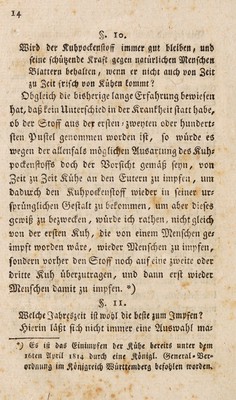 14
§. 10.
Wird der Kuhpockenstoff immer gut bleiben, und
seine schützende Kraft gegen natürlichen Menschen
Blattern behalten, wenn er nicht auch von Zeit
zu Zeit frisch von Kühen kommt?
Obgleich die bisherige lange Erfahrung bewiesen
hat, daß kein Unterschied in der Krankheit statt habe,
ob der Stoff aus der ersten- zweyten oder hunderts
sten Pustel genommen worden ist, so würde es
wegen der allenfalls möglichen Ausartung des Kuh-
pockenstoffs doch der Vorsicht gemäß seyn, von
Zeit zu Zeit Kühe an den Eutern zu impfen, um
dadurch den Kuhpockenstoff wieder in seiner ur-
sprünglichen Gestalt zu bekommen, um aber dieses
gewiß zu bezwecken, würde ich rathen, nicht gleich
von der ersten Kuh, die von einem Menschen ge-
impft worden wäre, wieder Menschen zu impfen,
sondern vorher den Stoff noch auf eine zweite oder
dritte Kuh überzutragen, und dann erst wieder
Menschen damit zu impfen. *)
§. 11.
Welche Jahrszeit ist wohl die beste zum Impfen?
Hierin läßt sich nicht immer eine Auswahl ma-
*) Es ist das Einimpfen der Kühe bereits unter dem
16ten April 1814 durch eine Königl. General-Ver-
ordnung im Königreich Württemberg befohlen worden.